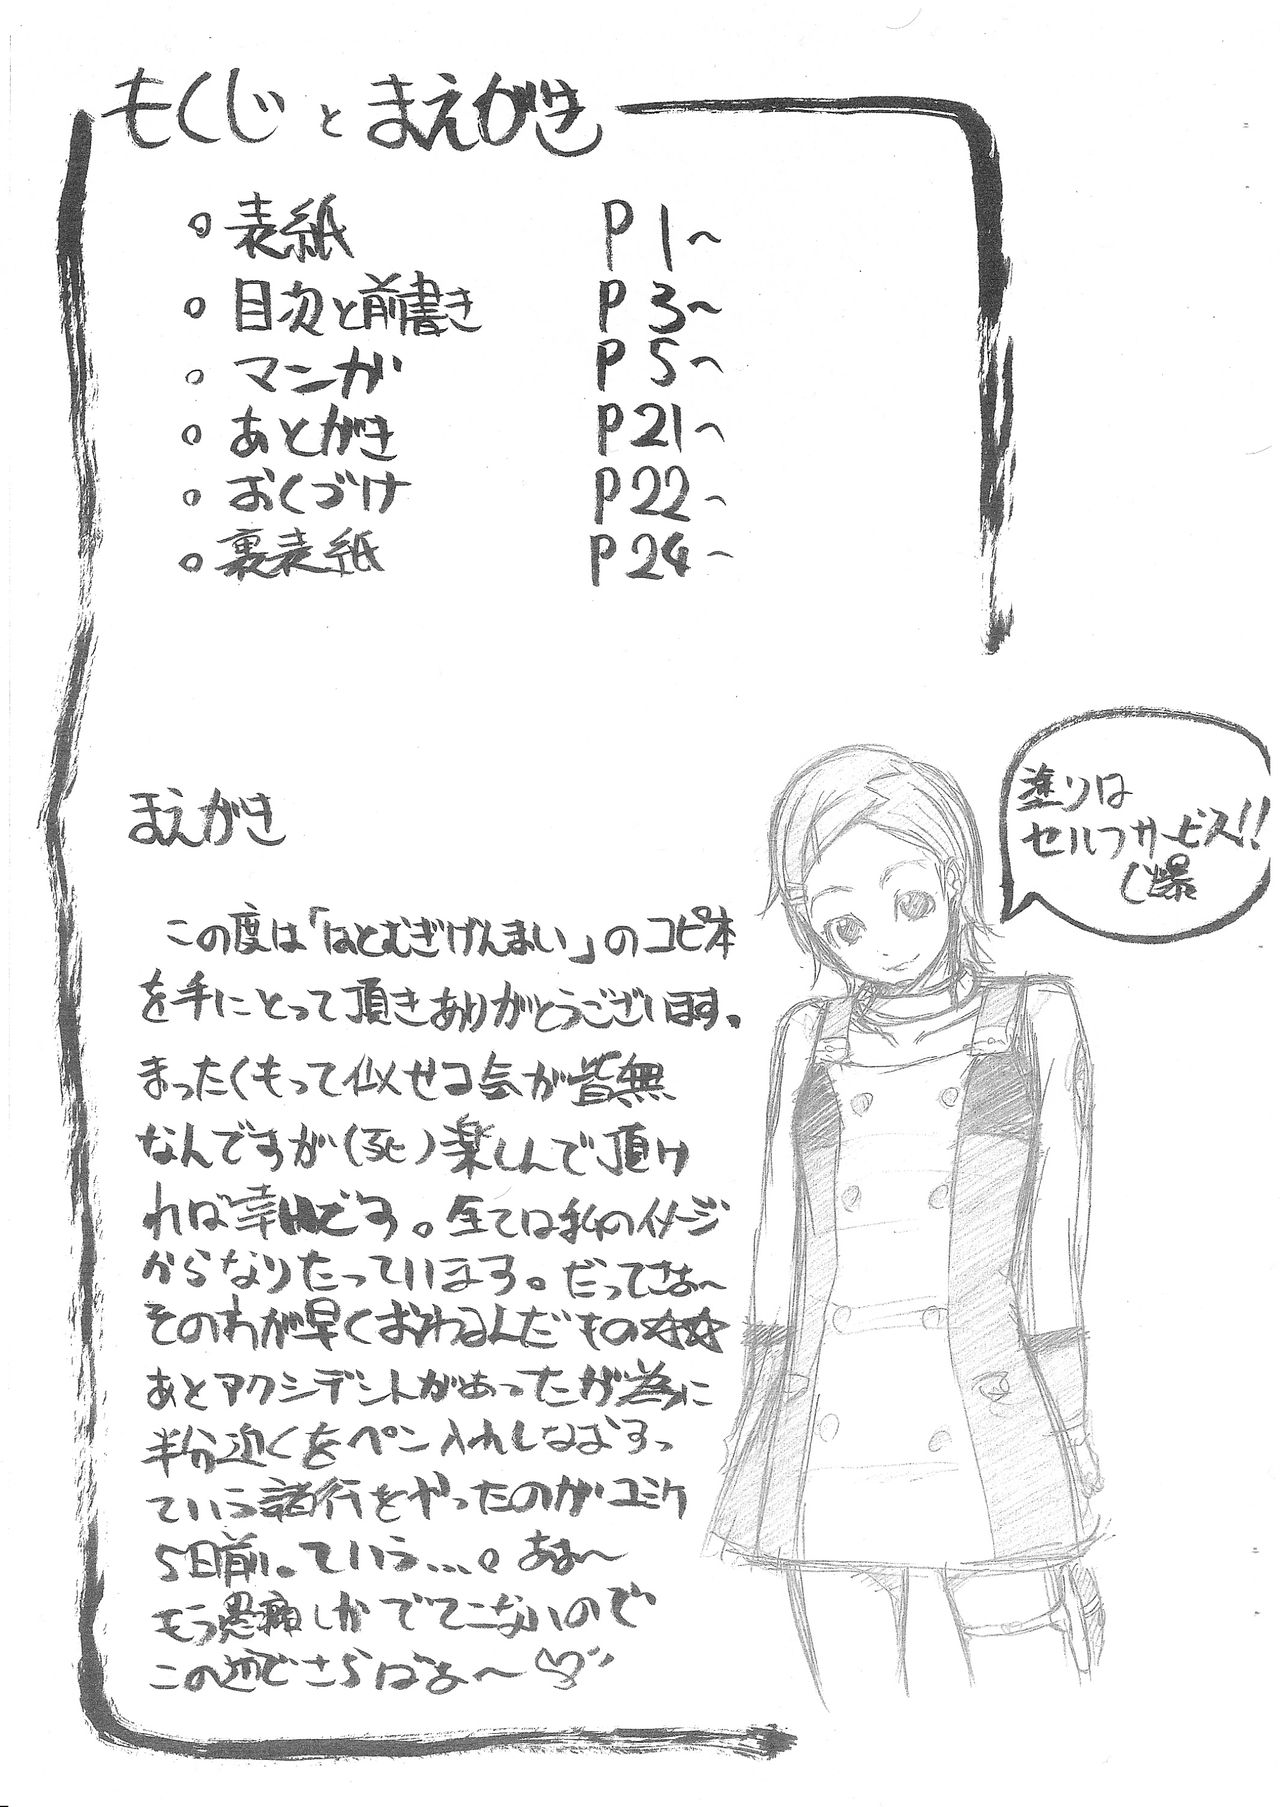 もくじとまえがき
○表紙 P1~
○目次と前書き P3~
○マンガ P5~
○あとがき P21~
○おくづけ P22~
○裏表紙 P24~
塗りは
セルフサービス!!
(爆
まえがき
この度は「はとむぎげんまい」のコピ本
を手にとって頂きありがとうございます。
まったくもって似せる気が皆無
なんですが(死)楽しんで頂け
れば幸いです。全ては私のイメージ
からなりたっています。だってさぁ~
そのわが早くおわるんだもの☆☆
あとアクシデントがあったが為に
半分近くをペン入れしなおすっ
ていう諸行をやったのがコミケ
5日前。ていう...。あぁ~
もう愚痴しかでてこないので
この辺でさらばぁ~♡